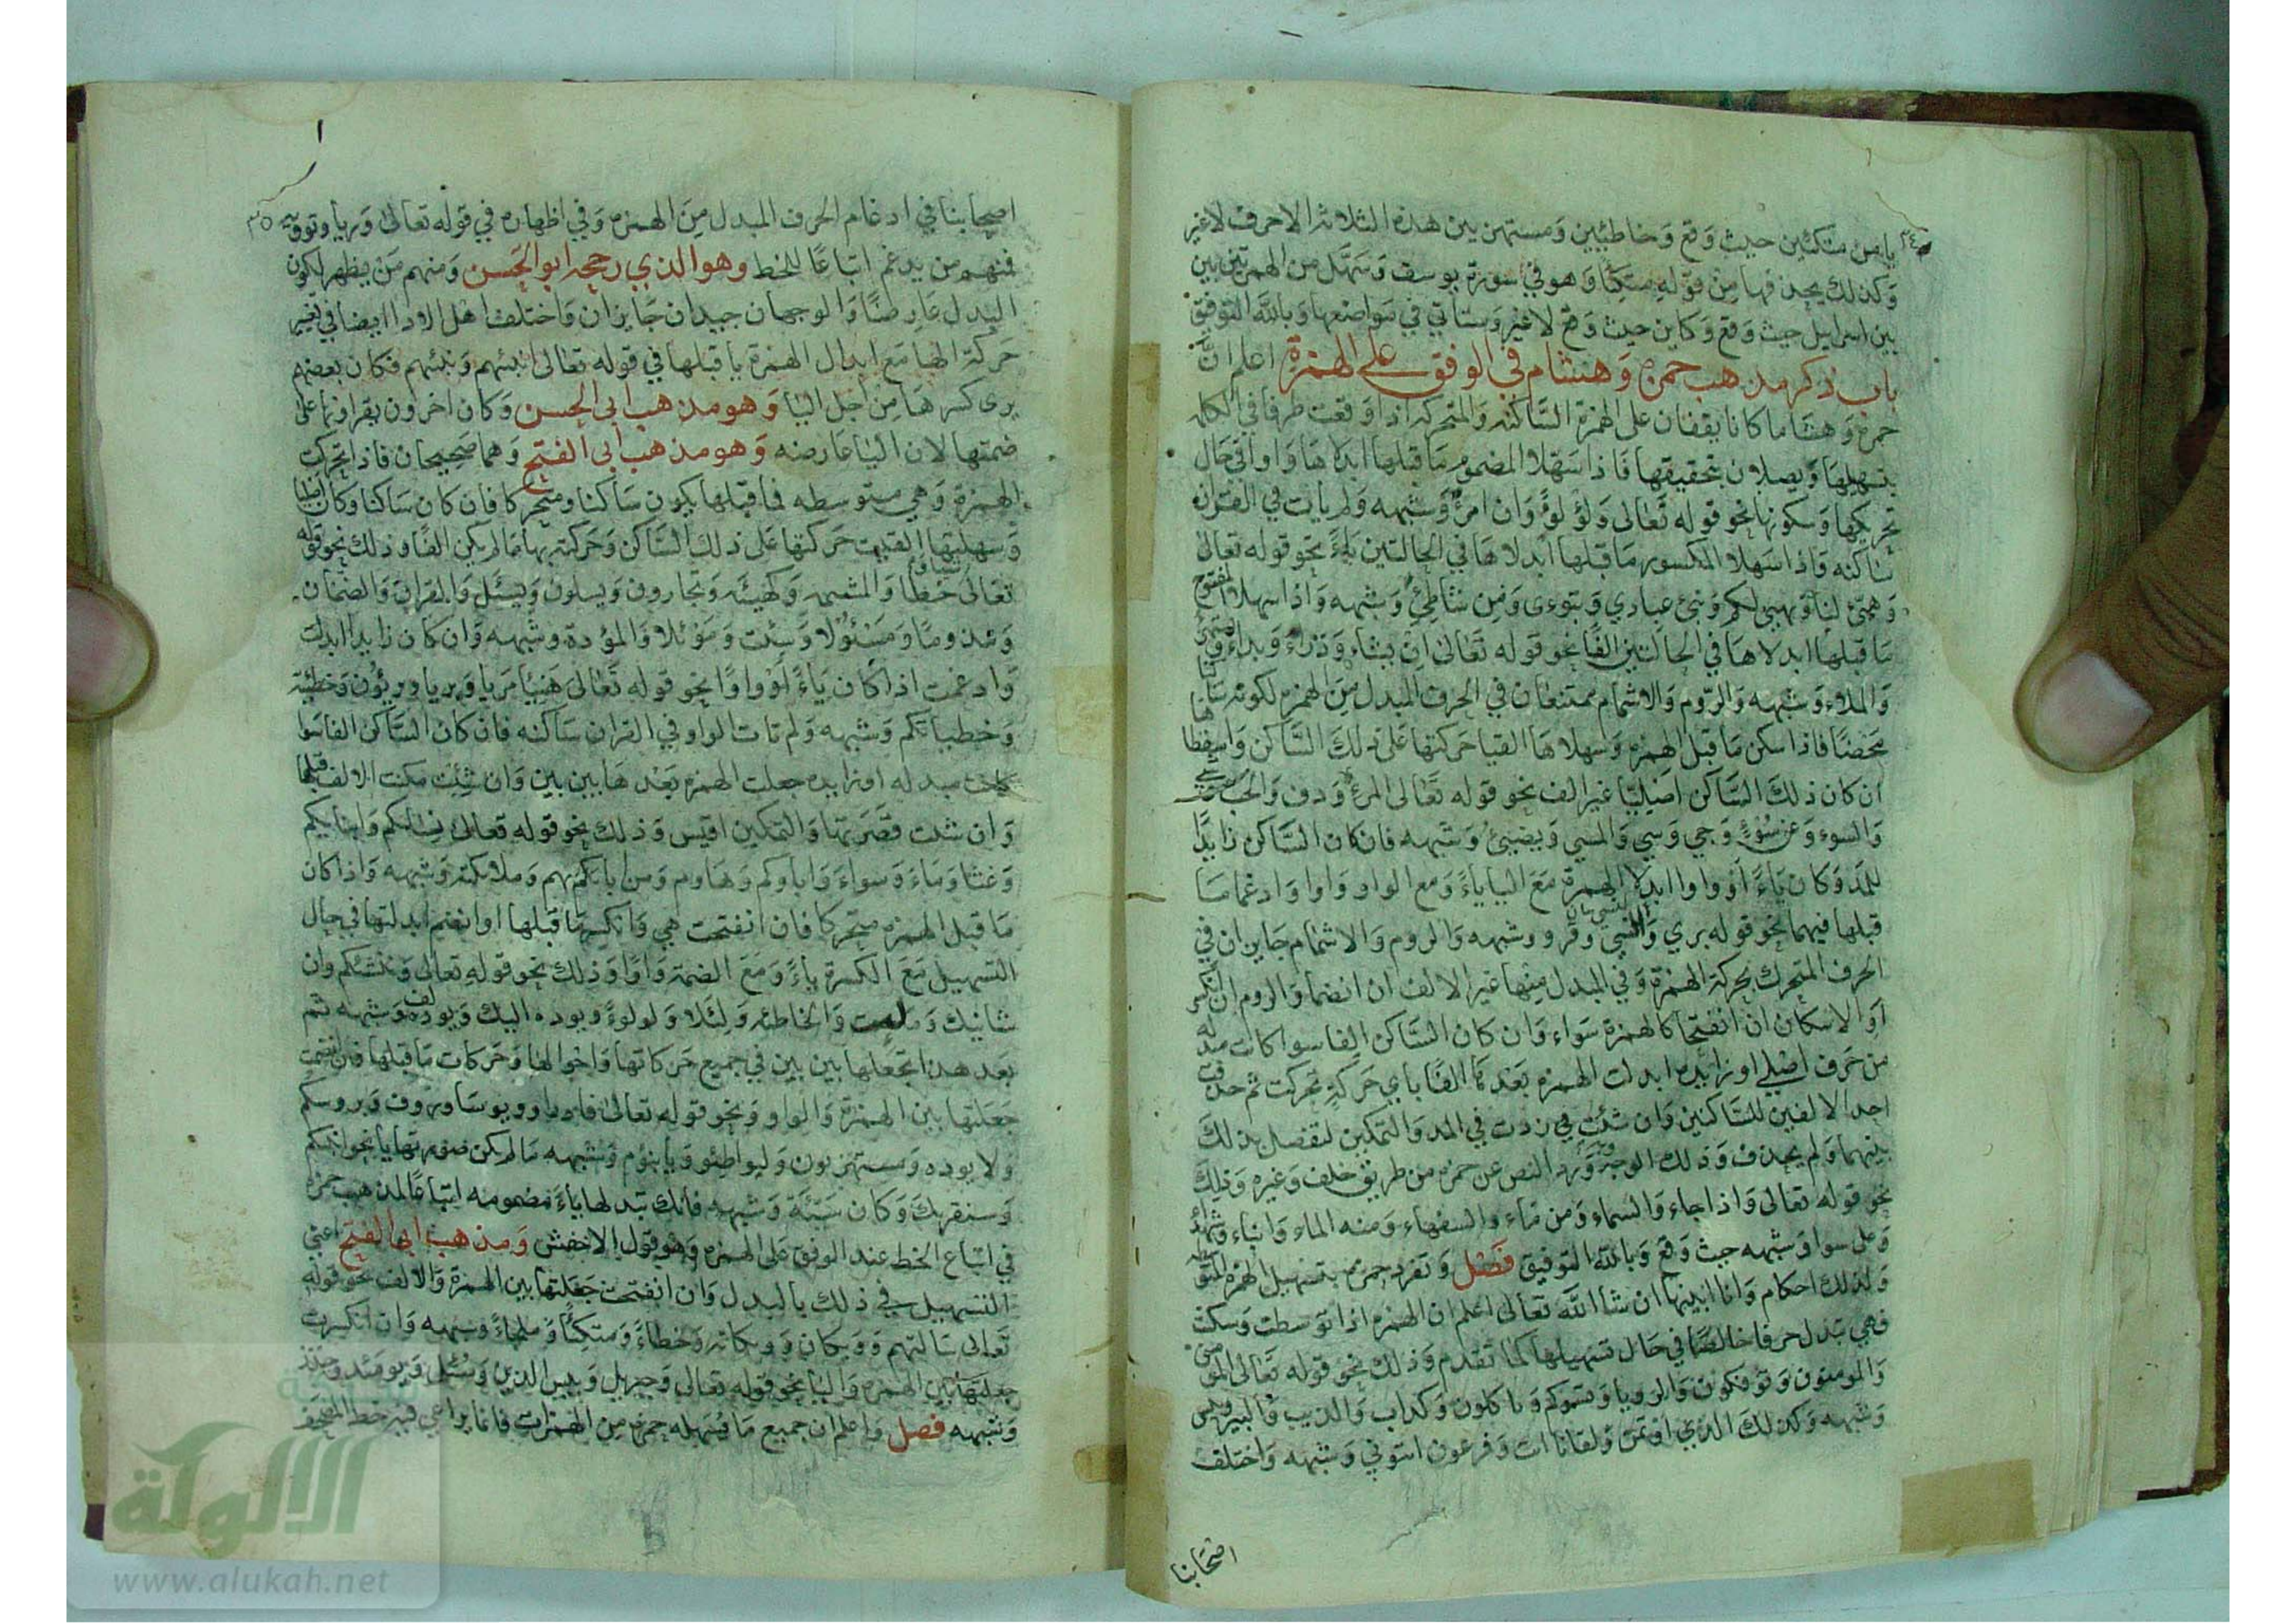 يا من متكئين حيث وقع وخاطئين ومستهزيين هذه الثلاثة الاحرف لاغير
وكذلك يحذفها من قوله متكئا وهو في سورة يوسف وسهل من الهمزتين بين
بين اسرايل حيث وقع وكاين حيث وقع لاغير وستاتي في مواضعها وبالله التوفيق
باب ذكر مذهب حمزه وهشام في الوقف على الهمزة اعلم ان
حمزه وهشاما كانا يقفان على الهمزة الساكنه والمتحركه اذا وقعت طرفا في الكلمه
بتسهيلها ويصلان بتحقيقها فاذا سهلا المضموم ما قبلها ابدلاها واوا في حال
تحريكها وسكونها نحو قوله تعالى ولؤلؤ وان امرؤ وشبهه ولم يات في القران
ساكنه فاذا سهلا المكسور ما قبلها ابدلاها في الحالتين ياء نحو قوله تعالى
وهيئ لنا ويهيئ لكم ونبئ عبادي وتبوءى ومن شاطئ وشبهه واذا سهلا المفتوح
ما قبلها ابدلاها في الحالتين الفا نحو قوله تعالى ان يشاء وذراء وبداء
والملاء وشبهه والروم والاشمام ممتنعان في الحرف المبدل من الهمزه لكونه ساكنا
محضا فاذا سكن ما قبل الهمزه وسهلاها القيا حركتها على ذلك الساكن واسقطاها
ان كان ذلك الساكن اصليا غير الف نحو قوله تعالى المرء ودف والخب
والسوء وعن سوء وجي وسي والمسي ويضيئ وشبهه فان كان الساكن زايدا
للمد وكان ياء او واوا ابدلا الهمزة مع اليا ياء ومع الواو واوا وادغما ما
قبلها فيهما نحو قوله بري والنسي وقروو وشبهه والروم والاشمام جايزان في
الحرف المتحرك بحركة الهمزة وفي المبدل منها غير الالف ان انضما والروم ان انكسر
او الاسكان ان انفتحا كالهمزة سواء وان كان الساكن الفا سوا كانت مبدله
من حرف اصلي او زايده ابدلت الهمزه بعدها الفا باي حركة تحركت ثم حذفت
احد الالفين للساكنين وان شئت زدت في المد والتمكين لتفصل بذلك
بينهما ولم يحذف وذلك الوجه وبه ورد النص عن حمزه من طريق خلف وغيره وذلك
نحو قوله تعالى واذا جاء والسماء ومن ماء والسفهاء ومنه الماء وابناء وشهداء
وعلى سوا وشبهه حيث وقع وبالله التوفيق فصل وتفرد حمزه بتسهيل الهمزه المتوسطه
ولذلك احكام وانا ابينها ان شا الله تعالى اعلم ان الهمزه اذا توسطت وسكنت
فهي تبدل حرفا خالصا في حال تسهيلها كما تقدم وذلك نحو قوله تعالى المومن
والمومنون وتوفكون والرويا وتسوكم وياكلون وكداب والذيب والبير وبيس
وشبهه وكذلك الذي اوتمن ولقانا ات وفرعون ايتوني وشبهه واختلف
اصحابنا
٣٥
اصحابنا في ادغام الحرف المبدل من الهمزه وفي اظهاره في قوله تعالى وريا وتوويه
فمنهم من يدغم اتباعا للخط وهو الذي رجحه ابو الحسن ومنهم من يظهر لكون
البدل عارضا والوجهان جيدان جايزان واختلف اهل الادا ايضا في تغيير
حركة الها مع ابدال الهمزة يا قبلها في قوله تعالى انبئهم ونبئهم فكان بعضهم
يرى كسرها من اجل اليا وهو مذهب ابي الحسن وكان اخرون يقراونها على
ضمتها لان اليا عارضه وهو مذهب ابي الفتح وهما صحيحان فاذا تحركت
الهمزة وهي متوسطه فما قبلها يكون ساكنا ومتحركا فان كان ساكنا وكان اصليا
وسهلتها القيت حركتها على ذلك الساكن وحركته بها ما لم يكن الفا وذلك نحو قوله
تعالى خطا والمشمه وكهيئه وتجارون ويسلون ويسئل والقران والضمان
ومذوما ومسئولا وسئت وموئلا والمؤدة وشبهه وان كان زايدا ابدلت
وادغمت اذا كان ياء او واوا نحو قوله تعالى هنيئا مريا وبريا وبريئون وخطيئة
وخطياتكم وشبهه ولم تات الواو في القران ساكنه فان كان الساكن الفا سوا
كانت مبدله او زايده جعلت الهمزه بعدها بين بين وان شئت مكنت الالف قبلها
وان شئت قصرتها والتمكين اقيس وذلك نحو قوله تعالى نسائكم وابنايكم
وغثا وماء وسواء واباوكم وهاوم ومن ابائهم وملائكته وشبهه واذا كان
ما قبل الهمزه متحركا فان انفتحت هي وانكسر ما قبلها او انضم ابدلتها في حال
التسهيل مع الكسرة ياء ومع الضمة واوا وذلك نحو قوله تعالى وننشئكم وان
شانيك وملئت والخاطئه ولئلا ولولوءا ويوده اليك ويولف وشبهه ثم
بعد هذا تجعلها بين بين في جميع حركاتها واحوالها وحركات ما قبلها فان انضمت
جعلتها بين الهمزة والواو ونحو قوله تعالى فادراوو ويوسا وروف وبروسكم
ولا يوده ومستهزيون وليواطئو ويابنؤم وشبهه ما لم يكن صورتها يا نحو انبئكم
وسنقريك وكان سيئة وشبهه فانك تبدلها ياء مضمومه اتباعا لمذهب حمزه
في اتباع الخط عند الوقف على الهمزه وهو قول الاخفش ومذهب ابي الفتح اعني
التسهيل في ذلك بالبدل وان انفتحت جعلتها بين الهمزة والالف نحو قوله
تعالى سالتهم وويكان وويكانه وخطاء ومتكئا وملجاء وشبهه وان انكسرت
جعلتها بين الهمزه واليا نحو قوله تعالى وجبريل وبيس الذين وسئل ويومئذ وحينئذ
وشبهه فصل واعلم ان جميع ما يسهله حمزه من الهمزات فانما يراعي فيه خط المصحف
الالوكة
www.alukah.net